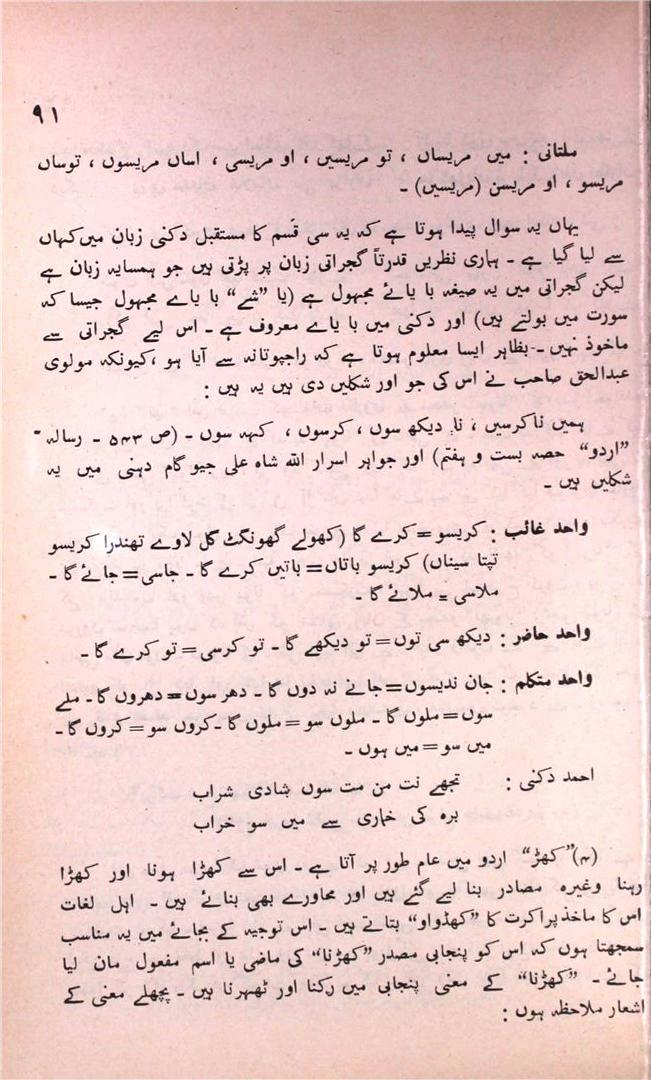 ۹۱
ملتانی : میں مریساں ، تو مریسیں ، او مریسی ، اساں مریسوں ، توساں
مریسو ، او مریسن (مریسیں) ۔
یہاں یہ سوال پیدا ہوتا ہے کہ یہ سی قسم کا مستقبل دکنی زبان میں کہاں
سے لیا گیا ہے ۔ ہماری نظریں قدرتاً گجراتی زبان پر پڑتی ہیں جو ہمسایہ زبان ہے
لیکن گجراتی میں یہ صیغہ با یائے مجہول ہے (یا ”شے“ با یاے مجہول جیسا کہ
سورت میں بولتے ہیں) اور دکنی میں با یاے معروف ہے ۔ اس لیے گجراتی سے
ماخوذ نہیں ۔ بظاہر ایسا معلوم ہوتا ہے کہ راجپوتانہ سے آیا ہو ،کیونکہ مولوی
عبدالحق صاحب نے اس کی جو اور شکلیں دی ہیں یہ ہیں :
ہمیں ناکرسیں ، نا دیکھ سوں ، کرسوں ، کہہ سوں ۔ (ص ۵۴۳ ۔ رسالہ
”اردو“ حصہ بست و ہفتم) اور جواہر اسرار اللہ شاہ علی جیو گام دہنی میں یہ
شکلیں ہیں ۔
واحد غائب : کریسو = کرے گا (کھولے گھونگٹ گل لاوے تھنڈرا کریسو
تپتا سیناں) کریسو باتاں = باتیں کرے گا ۔ جاسی = جائے گا ۔
ملاسی = ملائے گا ۔
واحد حاضر : دیکھ سی توں = تو دیکھے گا ۔ تو کرسی = تو کرے گا ۔
واحد متکلم : جان ندیسوں = جانے نہ دوں گا ۔ دھر سوں = دھروں گا ۔ ملے
سوں = ملوں گا ۔ ملوں سو = ملوں گا ۔کروں سو = کروں گا ۔
میں سو = میں ہوں ۔
احمد دکنی : تجھے نت من مت سوں شادی شراب
برہ کی خماری سے میں سو خراب
(۴) ”کھڑ“ اردو میں عام طور پر آتا ہے ۔ اس سے کھڑا ہونا اور کھڑا
رہنا وغیرہ مصادر بنا لیے گئے ہیں اور محاورے بھی بنائے ہیں ۔ اہل لغات
اس کا ماخذ پراکرت کا ”کھڈواو“ بتاتے ہیں ۔ اس توجیہ کے بجائے میں یہ مناسب
سمجھتا ہوں کہ اس کو پنجابی مصدر ”کھڑنا“ کی ماضی یا اسم مفعول مان لیا
جائے ۔ ”کھڑنا“ کے معنی پنجابی میں رکنا اور ٹھہرنا ہیں ۔ پچھلے معنی کے
اشعار ملاحظہ ہوں :